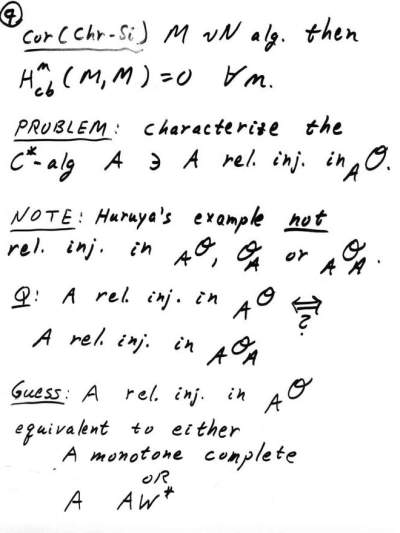 9
Cor (Chr-Si) M vN alg. then
H^m_cb (M, M) = 0 ∀m.
PROBLEM: characterize the
C*-alg A ∋ A rel. inj. in _A𝒪.
NOTE: Huruya's example not
rel. inj. in _A𝒪, 𝒪_A or _A𝒪_A.
Q: A rel. inj. in _A𝒪 ⟺?
A rel. inj. in _A𝒪_A
Guess: A rel. inj. in _A𝒪
equivalent to either
A monotone complete
OR
A AW*